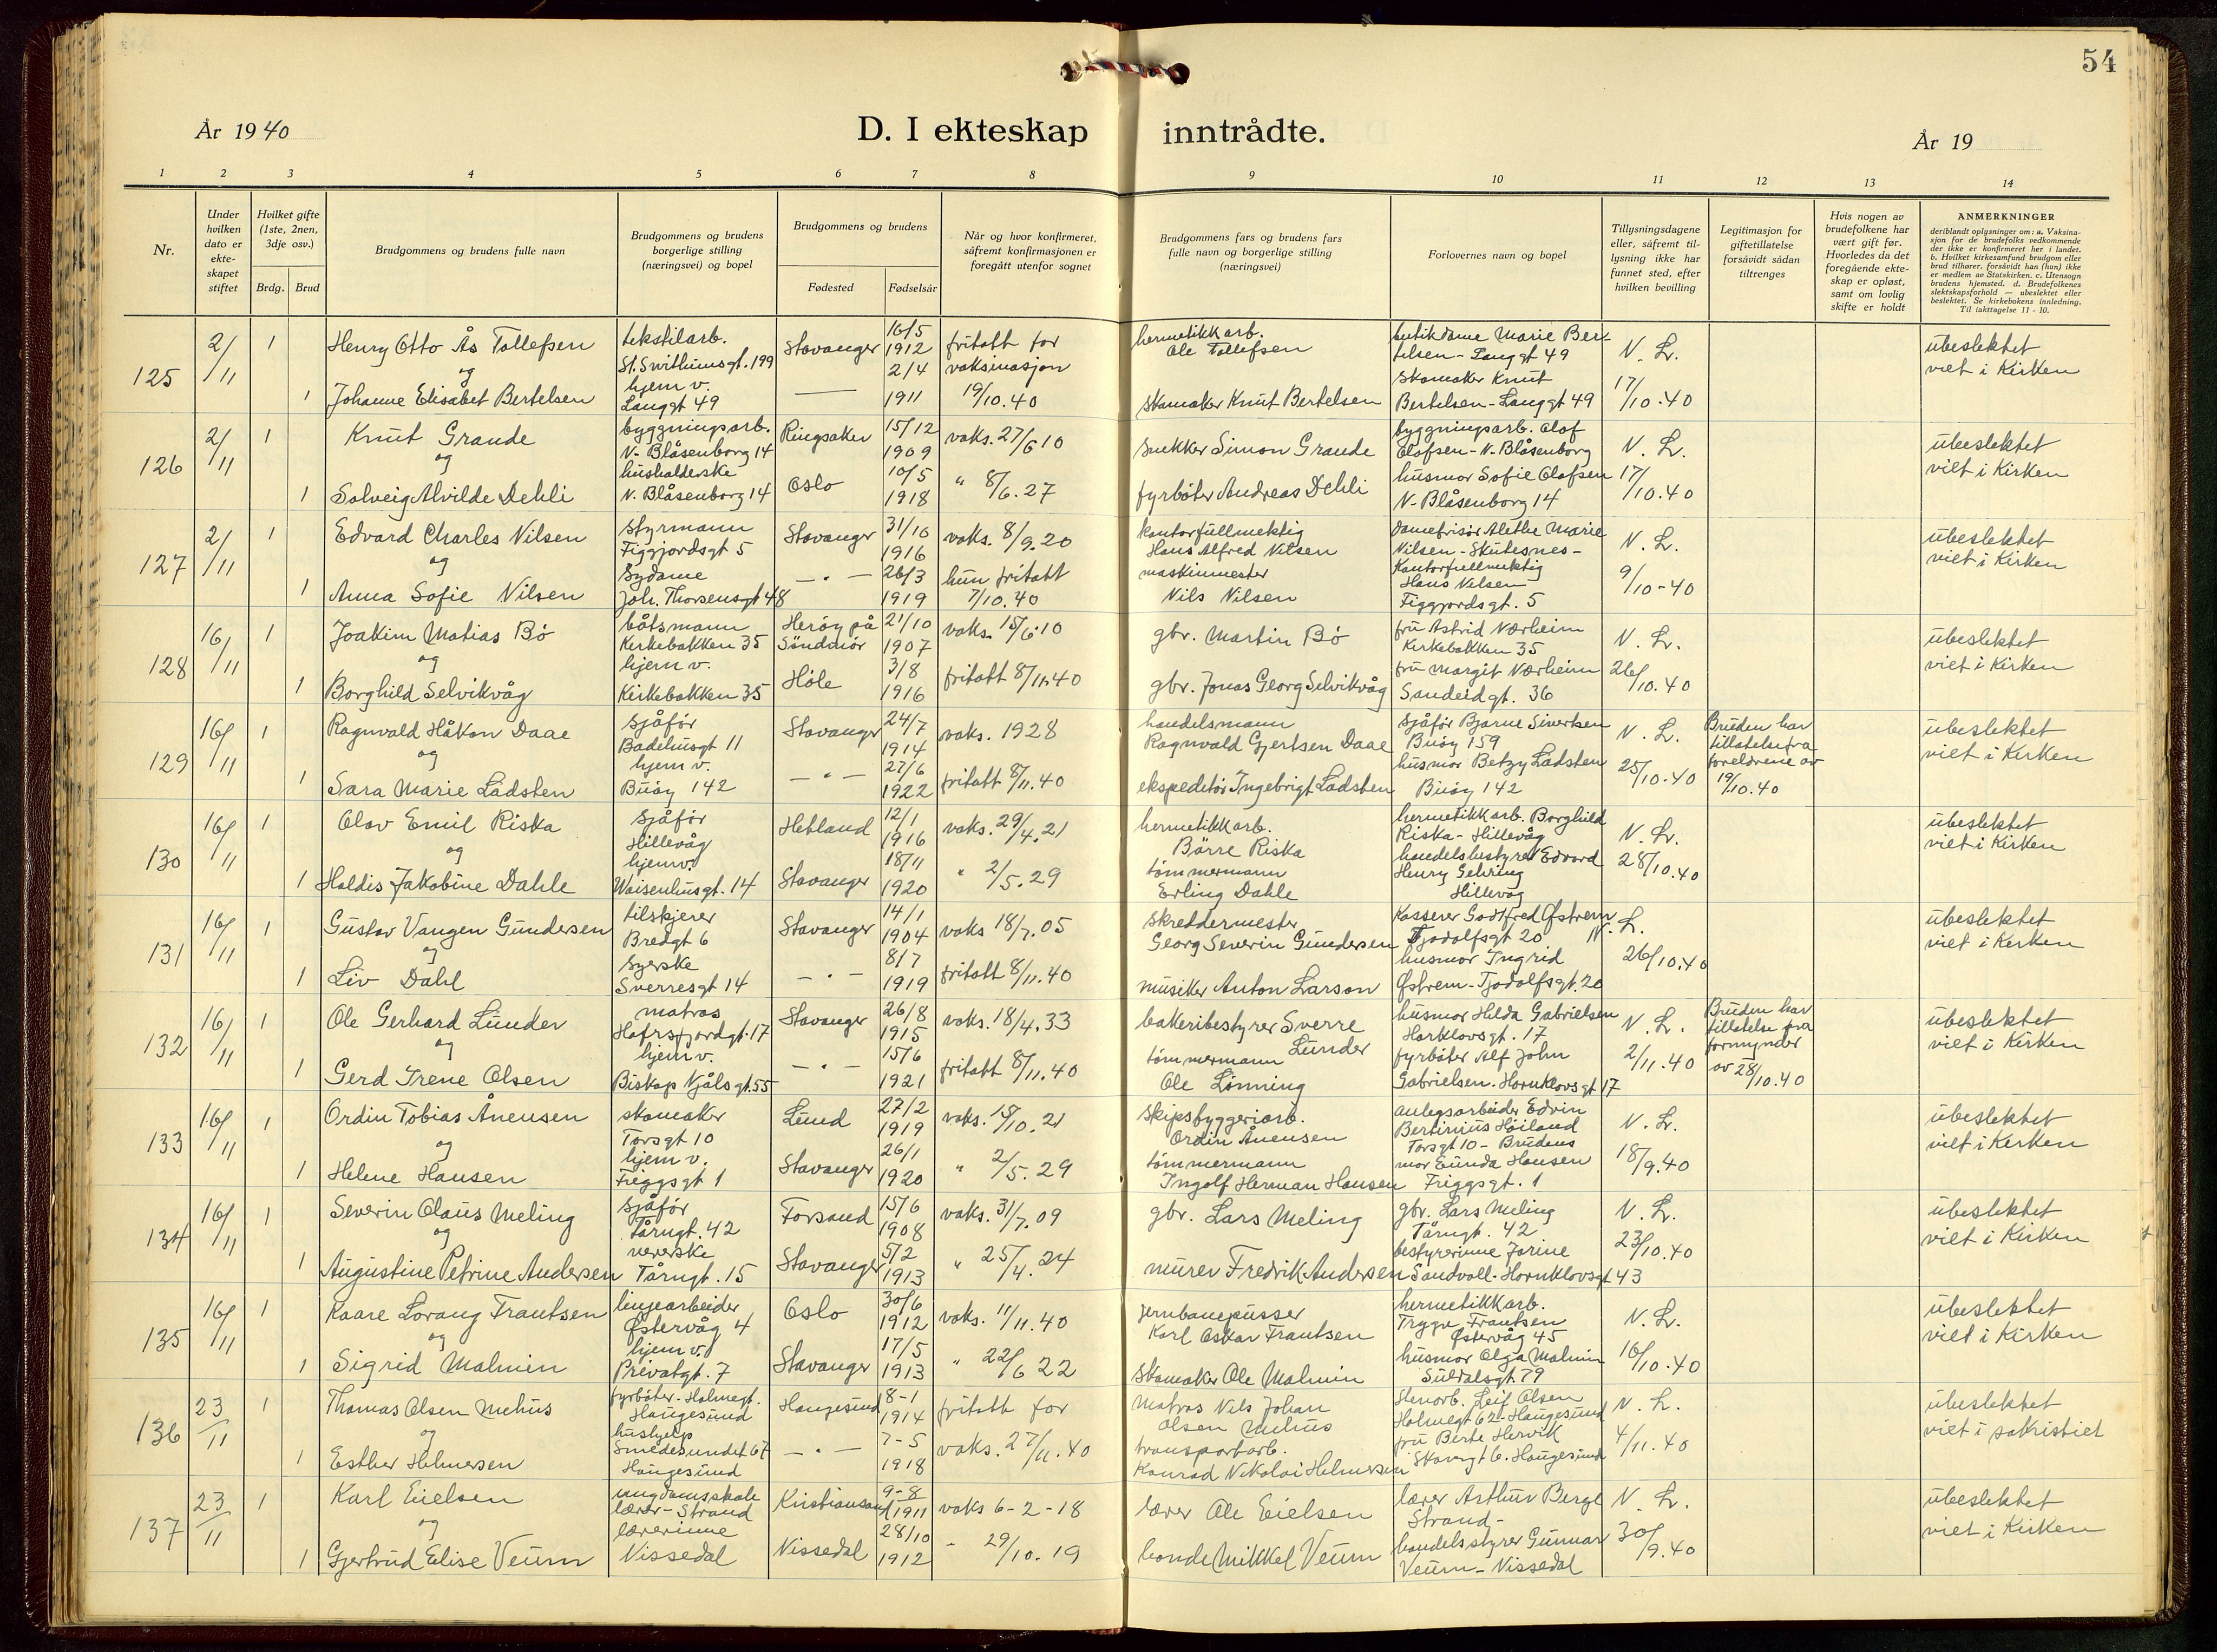 54
År 1940
D. I ekteskap inntrådte.
År 19
1 2 3 4 5 6 7 8 9 10 11 12 13 14
Nr.
Under hvilken dato er ekte-skapet stiftet
Hvilket gifte (1ste, 2nen, 3dje osv.)
Brdg. Brud
Brudgommens og brudens fulle navn
Brudgommens og brudens borgerlige stilling (næringsvei) og bopel
Brudgommens og brudens
Fødested Fødselsår
Når og hvor konfirmeret, såfremt konfirmasjonen er foregått utenfor sognet
Brudgommens fars og brudens fars fulle navn og borgerlige stilling (næringsvei)
Forlovernes navn og bopel
Tillysningsdagene eller, såfremt til-lysning ikke har funnet sted, efter hvilken bevilling
Legitimasjon for giftetillatelse forsåvidt sådan tiltrenges
Hvis nogen av brudefolkene har vært gift før. Hvorledes da det foregående ekte-skap er opløst, samt om lovlig skifte er holdt
ANMERKNINGER
deriblandt oplysninger om: a. Vaksina-sjon for de brudefolks vedkommende der ikke er konfirmeret her i landet. b. Hvilket kirkesamfund brudgom eller brud tilhører, forsåvidt han (hun) ikke er medlem av Statskirken. c. Utensogn brudens hjemsted. d. Brudefolkenes slektskapsforhold — ubeslektet eller beslektet. Se kirkebokens innledning. Til iakttagelse 11 - 10.
125 2/11 1 Henry Otto Ås Tollefsen tekstilarb. St. Svithunsgt. 199 Stavanger 16/5 1912 fritatt for vaksinasjon hermetikkarb. Ole Tollefsen butikdame Marie Ber-telsen - Langgt 49 N. L. ubeslektet viet i Kirken
og
1 Johanne Elisabet Bertelsen hjem v. Langgt 49 — 2/4 1911 19/10.40 skomaker Knut Bertelsen skomaker Knut Bertelsen - Langgt 49 17/10.40
126 2/11 1 Knut Grande byggningsarb. N. Blåsenborg 14 Ringsaker 15/12 1909 vaks. 27/6 10 snekker Simon Grande byggningsarb. Olof Olofsen - N. Blåsenborg N. L. ubeslektet viet i Kirken
og
1 Solveig Alvilde Dehli husholderske N. Blåsenborg 14 Oslo 10/5 1918 " 8/6.27 fyrbøter Andreas Dehli husmor Sofie Olofsen N. Blåsenborg 14 17/10.40
127 2/11 1 Edvard Charles Nilsen styrmann Figgjordsgt 5 Stavanger 31/10 1916 vaks. 8/9.20 kontorfullmektig Hans Alfred Nilsen Damefrisør Alethe Marie Nilsen - Skutesnes - N. L. ubeslektet viet i Kirken
og
1 Anna Sofie Nilsen Sydame Joh. Thorsensgt 48 — " — 26/3 1919 hun fritatt 7/10.40 maskinmester Nils Nilsen Kontorfullmektig Hans Nilsen Figgjordsgt. 5 9/10-40
128 16/11 1 Joakim Matias Bö båtsmann Kirkebakken 35 Herøy på Söndmör 21/10 1907 vaks. 15/6.10 gbr. Martin Bö fru Astrid Nærheim Kirkebakken 35 N. L. ubeslektet viet i Kirken
og
1 Borghild Selvikvåg hjem v. Kirkebakken 35 Höle 3/8 1916 fritatt 8/11.40 gbr. Jonas Georg Selvikvåg fru Margit Nærheim Sandeidgt. 36 26/10.40
129 16/11 1 Ragnvald Håkon Daae sjåför Badehusgt 11 Stavanger 24/7 1914 vaks. 1928 handelsmann Ragnvald Gjertsen Daae sjåför Bjarne Sivertsen Buøy 159 N. L. Bruden har tillatelse fra foreldrene av 19/10.40 ubeslektet viet i Kirken
og
1 Sara Marie Ladsten hjem v. Buøy 142 — " — 27/6 1922 fritatt 8/11.40 ekspeditör Ingebrigt Ladsten husmor Betzy Ladsten Buöy 142 25/10-40
130 16/11 1 Olav Emil Riska sjåför Hillevåg Hetland 12/1 1916 vaks. 29/4.21 hermetikkarb. Börre Riska hermetikkarb. Borghild Riska - Hillevåg N. L. ubeslektet viet i Kirken
og
1 Haldis Jakobine Dahle hjem v. Waisenhusgt. 14 Stavanger 18/11 1920 " 2/5.29 tömmermann Erling Dahle handelsbestyrer Edvard Henry Gehring Hillevåg 28/10.40
131 16/11 1 Gustav Vangen Gundersen tilskjerer Bredgt 6 Stavanger 14/1 1904 vaks 18/7.05 skreddermester Georg Severin Gundersen Kasserer Godtfred Østrem Tjodolfsgt 20 N. L. ubeslektet viet i Kirken
og
1 Liv Dahl Syerske Sverresgt 14 — " — 8/7 1919 fritatt 8/11.40 musiker Anton Larson husmor Ingrid Østrem - Tjodolfsgt. 20 26/10.40
132 16/11 1 Ole Gerhard Lunder matros Hafrsfjordgt. 17 Stavanger 26/8 1915 vaks. 18/4.33 bakeribestyrer Sverre Lunder husmor Hilda Gabrielsen Harklovsgt. 17 N. L. Bruden har tillatelse fra formynder av 28/10.40 ubeslektet viet i Kirken
og
1 Gerd Irene Olsen hjem v. Biskop Njålsgt. 55 — " — 15/6 1921 fritatt 8/11.40 tömmermann Ole Lönning fyrböter Alf John Gabrielsen. Hornklovsgt 17 2/11.40
133 16/11 1 Ordin Tobias Ånensen skomaker Torsgt 10 Lund 27/2 1919 vaks. 15/10.21 skipsbyggeriarb. Ordin Ånensen anlegsarbeider Edvin Bertinius Höiland Torsgt 10 - Brudens N. L. ubeslektet viet i Kirken
og
1 Helene Hansen hjem v. Friggsgt 1 Stavanger 26/1 1920 " 2/5.29 tömmermann Ingolf Herman Hansen mor Eunda Hansen Friggsgt. 1 18/9.40
134 16/11 1 Severin Olaus Meling sjåför Tårngt. 42 Forsand 15/6 1908 vaks. 31/7.09 gbr. Lars Meling gbr. Lars Meling Tårngt. 42 N. L. ubeslektet viet i Kirken
og
1 Augustine Petrine Andersen veverske Tårngt. 15 Stavanger 5/2 1913 " 25/4.24 murer Fredrik Andersen bestyrerinne Jorine Sandvoll. Hornklovsgt 43 23/10.40
135 16/11 1 Kaare Lorang Frantsen linjearbeider Østervåg 4 Oslo 30/6 1912 vaks. 11/11.40 jernbanepusser Karl Oskar Frantsen hermetikkarb. Trygve Frantsen Østervåg 45 N. L. ubeslektet viet i Kirken
og
1 Sigrid Malmin hjem v. Privatgt. 7 Stavanger 17/5 1913 " 22/6 22 Skomaker Ole Malmin husmor Olga Malmin Suldalsgt. 79 16/10.40
136 23/11 1 Thomas Olsen Mehus fyrböter - Holmegt. Haugesund Haugesund 8-1 1914 fritatt for matros Nils Johan Olsen Mehus Leif Olsen Holmegt 62 - Haugesund N. L. ubeslektet viet i sakristiet
og
1 Esther Helmersen hushjelp Smedesundet 67 Haugesund — " — 7-5 1918 vaks. 27/11.40 transportarb. Konrad Nikolai Helmersen fru Berte Hervik Skovgt 6. Haugesund 4/11.40
137 23/11 1 Karl Eielsen ungdomsskole lærer - Strand Kristiansand 9-8 1911 vaks 6-2-18 lærer Ole Eielsen lærer Arthur Berge Strand - N. L. ubeslektet viet i Kirken
og
1 Gjertrud Elise Veum lærerinne Nissedal Nissedal 28/10 1912 " 29/10.19 bonde Mikkel Veum handelsstyrer Gunnar Veum - Nissedal 30/9.40